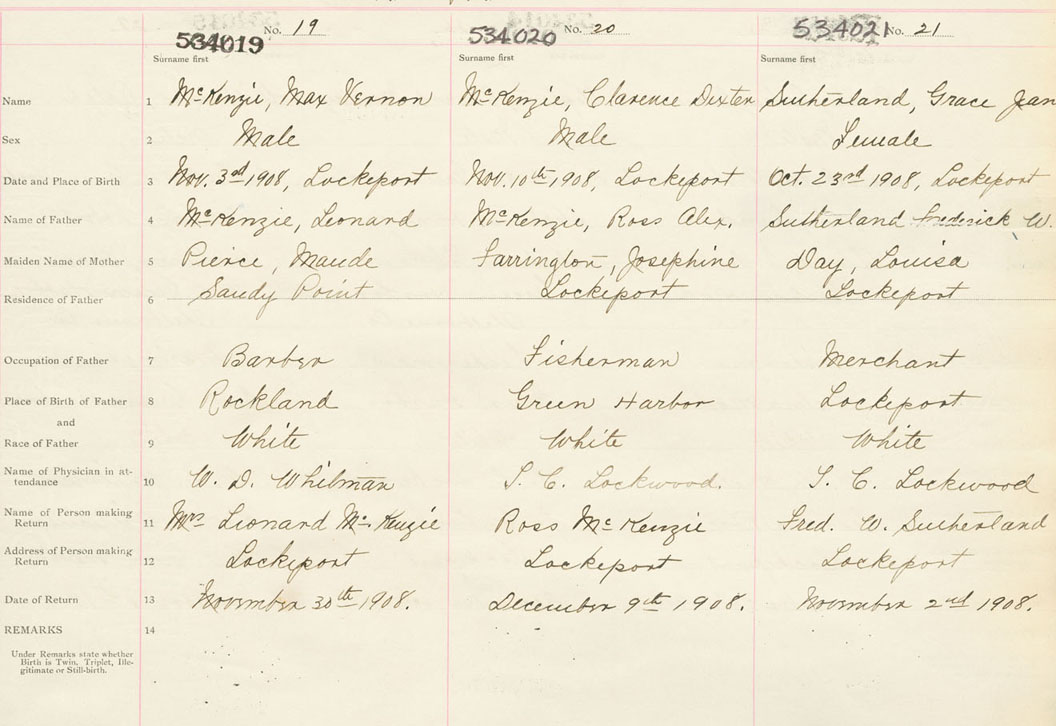 534019 No. 19 534020 No. 20 534021 No. 21
Surname first Surname first Surname first
Name 1 McKenzie, Max Vernon McKenzie, Clarence Dexter Sutherland, Grace Jean
Sex 2 Male Male Female
Date and Place of Birth 3 Nov. 3rd 1908, Lockeport Nov. 10th 1908, Lockeport Oct. 23rd 1908, Lockeport
Name of Father 4 McKenzie, Leonard McKenzie, Ross Alex. Sutherland Frederick W.
Maiden Name of Mother 5 Pierce, Maude Farrington, Josephine Day, Louisa
Residence of Father 6 Sandy Point Lockeport Lockeport
Occupation of Father 7 Barber Fisherman Merchant
Place of Birth of Father 8 Rockland Green Harbor Lockeport
and
Race of Father 9 White White White
Name of Physician in at-
tendance 10 W. D. Whitman S. C. Lockwood. S. C. Lockwood
Name of Person making
Return 11 Mrs Leonard McKenzie Ross McKenzie Fred. W. Sutherland
Address of Person making
Return 12 Lockeport Lockeport Lockeport
Date of Return 13 November 30th 1908. December 9th 1908. November 2nd 1908.
REMARKS 14
Under Remarks state whether
Birth is Twin, Triplet, Ille-
gitimate or Still-birth.